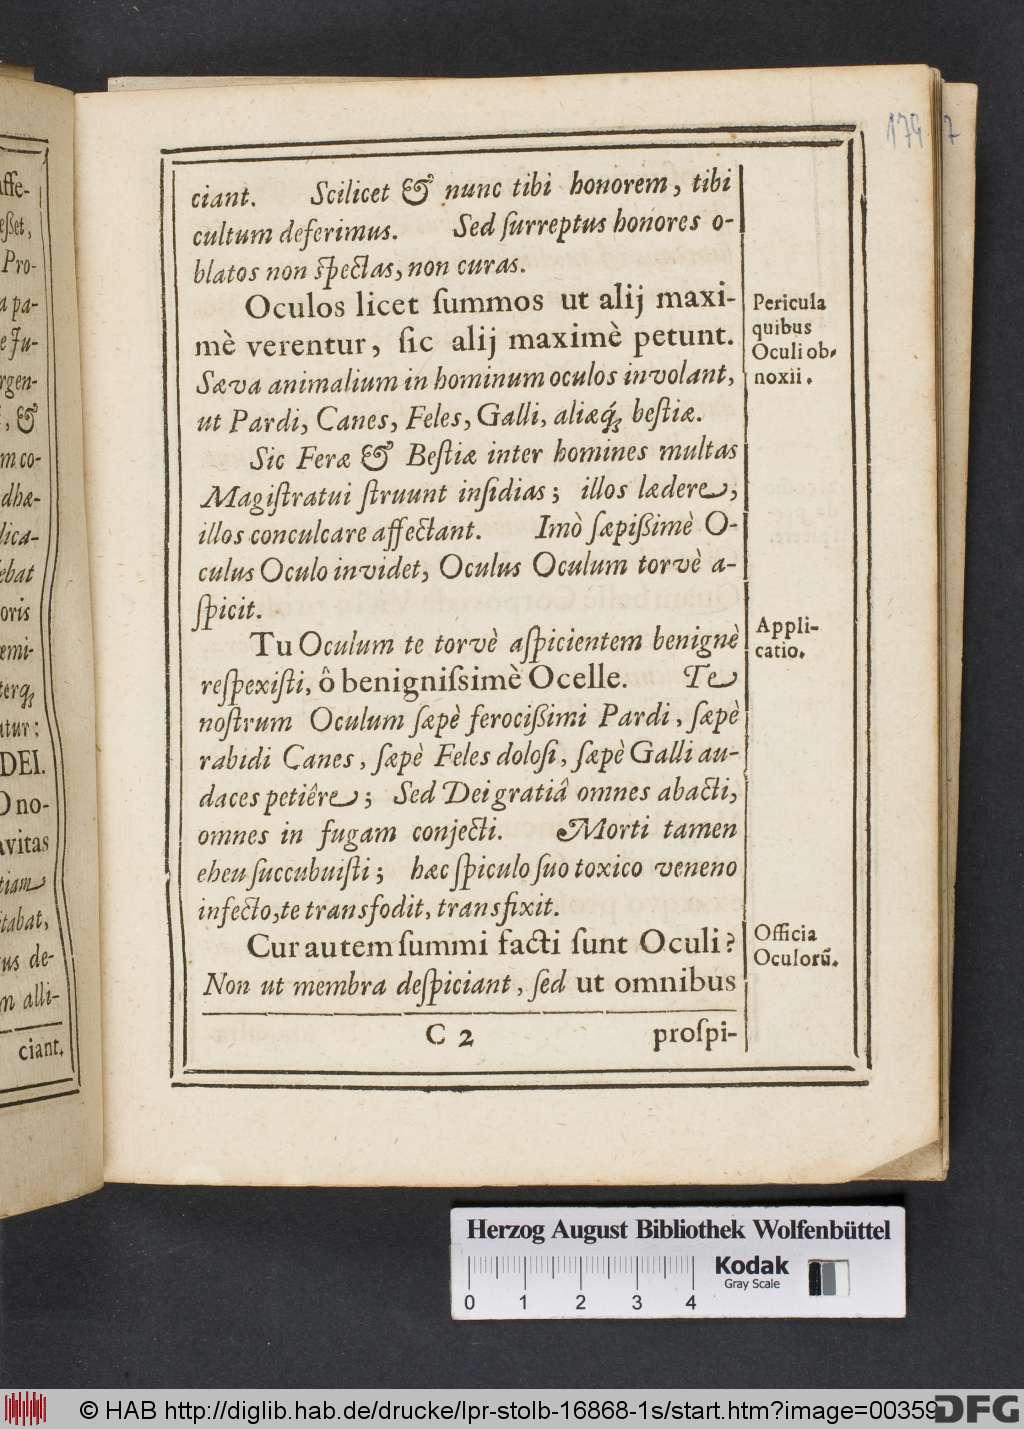 affe-
eßet,
Pro-
a pa-
e Ju-
rgen-
, &
m co-
dhæ-
lica-
ebat
oris
æmi-
terq́ꝫ
utur:
DEI.
O no-
avitas
tiam
itabat,
us de-
m alli-
ciant.
174 7
ciant. Scilicet & nunc tibi honorem, tibi
cultum deferimus. Sed ſurreptus honores o-
blatos non ſpectas, non curas.
Oculos licet ſummos ut alij maxi-
mè verentur, ſic alij maximè petunt.
Sæva animalium in hominum oculos involant,
ut Pardi, Canes, Feles, Galli, aliæq́ꝫ beſtiæ.
Pericula
quibus
Oculi ob-
noxii.
Sic Feræ & Beſtiæ inter homines multas
Magiſtratui ſtruunt inſidias; illos lædere,
illos conculcare affectant. Imò ſæpißimè O-
culus Oculo invidet, Oculus Oculum torvè a-
ſpicit.
Tu Oculum te torvè aſpicientem benignè
reſpexiſti, ô benigniſsimè Ocelle. Te
noſtrum Oculum ſæpè ferocißimi Pardi, ſæpè
rabidi Canes, ſæpè Feles doloſi, ſæpè Galli au-
daces petiêre; Sed Dei gratiâ omnes abacti,
omnes in fugam conjecti. Morti tamen
eheu ſuccubuiſti; hæc ſpiculo ſuo toxico veneno
infecto, te transfodit, transfixit.
Appli-
catio.
Cur autem ſummi facti ſunt Oculi?
Non ut membra deſpiciant, ſed ut omnibus
Officia
Oculorũ.
C 2 proſpi-
Herzog August Bibliothek Wolfenbüttel
Kodak
Gray Scale
0 1 2 3 4
© HAB http://diglib.hab.de/drucke/lpr-stolb-16868-1s/start.htm?image=00359
DFG